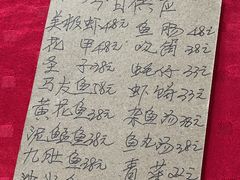 今日供应
美极虾48元 鱼肠48元
花甲48元 吹筒68元
圣子38元 蚝仔33元
马友鱼58元 虾蟳33元
黄花鱼38元 杂鱼汤35元
泥鯭鱼38元 鱼丸汤38元
九肚鱼38元 青菜22元